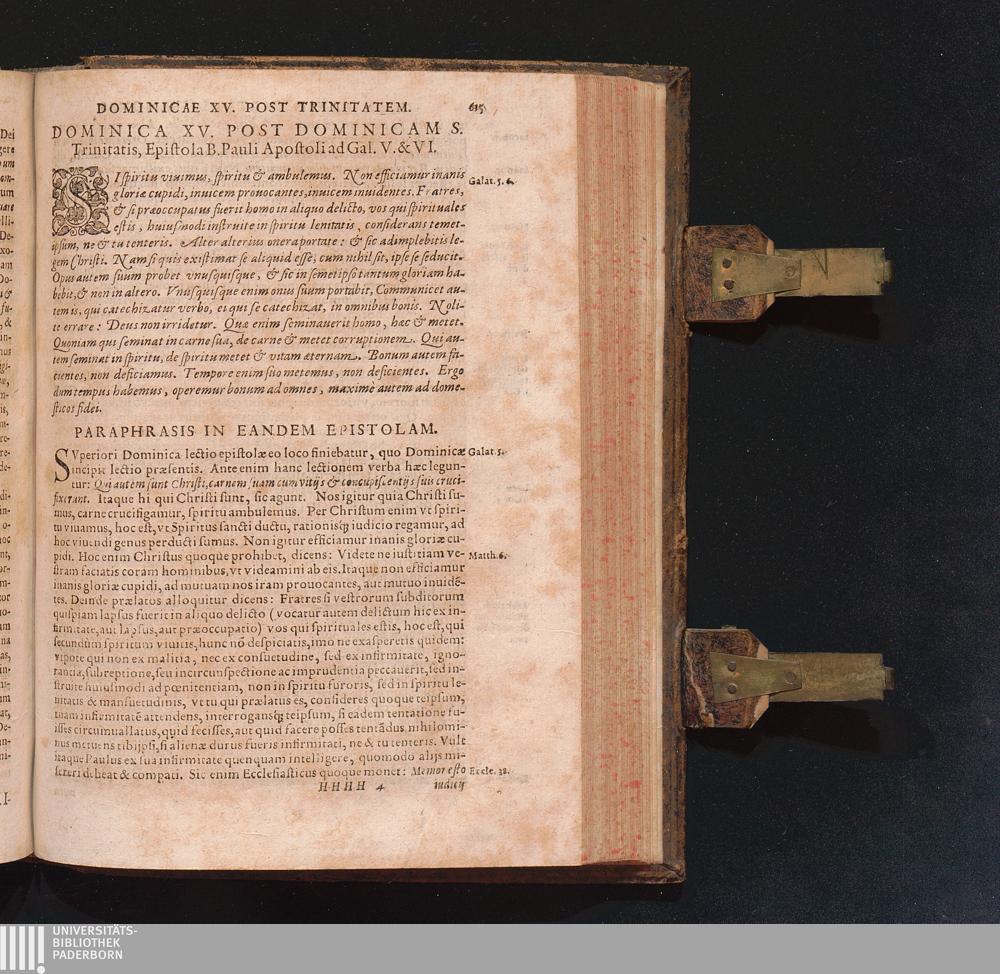 DOMINICAE XV. POST TRINITATEM. 615
DOMINICA XV. POST DOMINICAM S.
Trinitatis, Epiſtola B. Pauli Apoſtoli ad Gal. V. & VI.
SI ſpiritu viuimus, ſpiritu & ambulemus. Non efficiamur inanis Galat. 5. 6.
gloriæ cupidi, inuicem prouocantes, inuicem inuidentes. Fratres,
& ſi præoccupatus fuerit homo in aliquo delicto, vos qui ſpirituales
eſtis, huiuſmodi inſtruite in ſpiritu lenitatis, conſiderans temet-
ipſum, ne & tu tenteris. Alter alterius onera portate: & ſic adimplebitis le-
gem Chriſti. Nam ſi quis exiſtimat ſe aliquid eſſe, cum nihil ſit, ipſe ſe ſeducit.
Opus autem ſuum probet vnuſquiſque, & ſic in ſemetipſo tantum gloriam ha-
bebit, & non in altero. Vnuſquiſque enim onus ſuum portabit, Communicet au-
tem is, qui catechizatur verbo, ei qui ſe catechizat, in omnibus bonis. Noli-
te errare: Deus non irridetur. Quæ enim ſeminauerit homo, hæc & metet.
Quoniam qui ſeminat in carne ſua, de carne & metet corruptionem. Qui au-
tem ſeminat in ſpiritu, de ſpiritu metet & vitam æternam. Bonum autem fa-
cientes, non deficiamus. Tempore enim ſuo metemus, non deficientes. Ergo
dum tempus habemus, operemur bonum ad omnes, maximè autem ad dome-
ſticos fidei.
PARAPHRASIS IN EANDEM EPISTOLAM.
SVperiori Dominica lectio epiſtolæ eo loco finiebatur, quo Dominicæ Galat. 5.
incipit lectio præſentis. Ante enim hanc lectionem verba hæc legun-
tur: Qui autem ſunt Chriſti, carnem ſuam cum vitijs & concupiſcentijs ſuis cruci-
fixerunt. Itaque hi qui Chriſti ſunt, ſic agunt. Nos igitur quia Chriſti ſu-
mus, carne crucifigamur, ſpiritu ambulemus. Per Chriſtum enim vt ſpiri-
tu viuamus, hoc eſt, vt Spiritus ſancti ductu, rationisq́; iudicio regamur, ad
hoc viuendi genus perducti ſumus. Non igitur efficiamur inanis gloriæ cu-
pidi. Hoc enim Chriſtus quoque prohibet, dicens: Videte ne iuſtitiam ve- Matth. 6.
ſtram faciatis coram hominibus, vt videamini ab eis. Itaque non efficiamur
inanis gloriæ cupidi, ad mutuam nos iram prouocantes, aut mutuo inuidē-
tes. Deinde prælatos alloquitur dicens: Fratres ſi veſtrorum ſubditorum
quiſpiam lapſus fuerit in aliquo delicto (vocatur autem delictum hic ex in-
firmitate, aut lapſus, aut præoccupatio) vos qui ſpirituales eſtis, hoc eſt, qui
ſecundum ſpiritum viuitis, hunc nō deſpiciatis, imo ne exaſperetis quidem:
vtpote qui non ex malitia, nec ex conſuetudine, ſed ex infirmitate, igno-
rantia, ſubreptione, ſeu incircunſpectione ac imprudentia peccauerit, ſed in-
ſtruite huiuſmodi ad pœnitentiam, non in ſpiritu furoris, ſed in ſpiritu le-
nitatis & manſuetudinis, vt tu qui prælatus es, conſideres quoque teipſum,
tuam infirmitatē attendens, interrogansq́; teipſum, ſi eadem tentatione fu-
iſſes circumuallatus, quid feciſſes, aut quid facere poſſes tentādus, nihilomi-
nus metuens tibi ipſi, ſi alienæ durus fueris infirmitati, ne & tu tenteris. Vult
itaque Paulus ex ſua infirmitate quenquam intelligere, quomodo alijs mi-
ſereri debeat & compati. Sic enim Eccleſiaſticus quoque monet: Memor eſto Eccle. 38.
HHHH 4 iudicij
UNIVERSITÄTS-
BIBLIOTHEK
PADERBORN